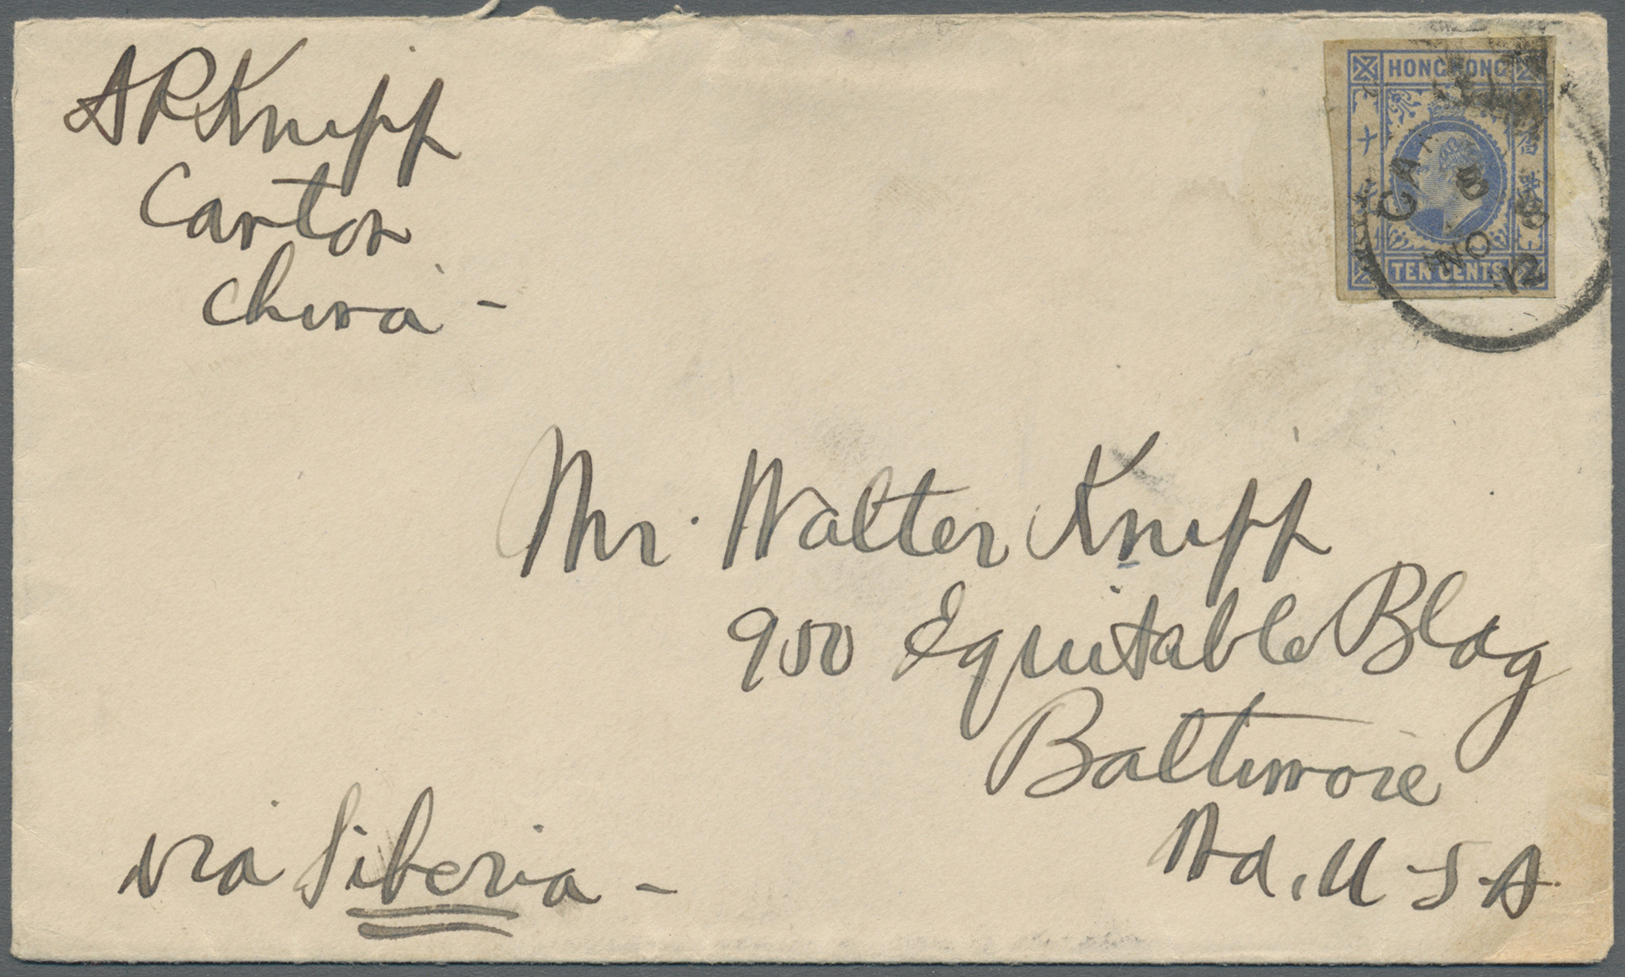 A P Knipp
Canton
China -
HONG KONG
TEN CENTS
CA
B
NO 6
12
Mr. Walter Knipp
900 Equitable Bldg
Baltimore
Md, U-S-A.
via Siberia -